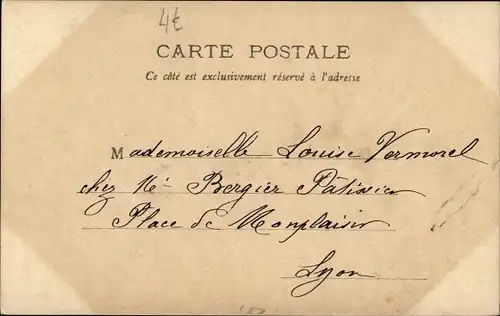 4€
CARTE POSTALE
Ce côté est exclusivement réservé à l'adresse
Mademoiselle Louise Vermorel
chez Mr Bergier Pâtissier
Place de Monplaisir
Lyon